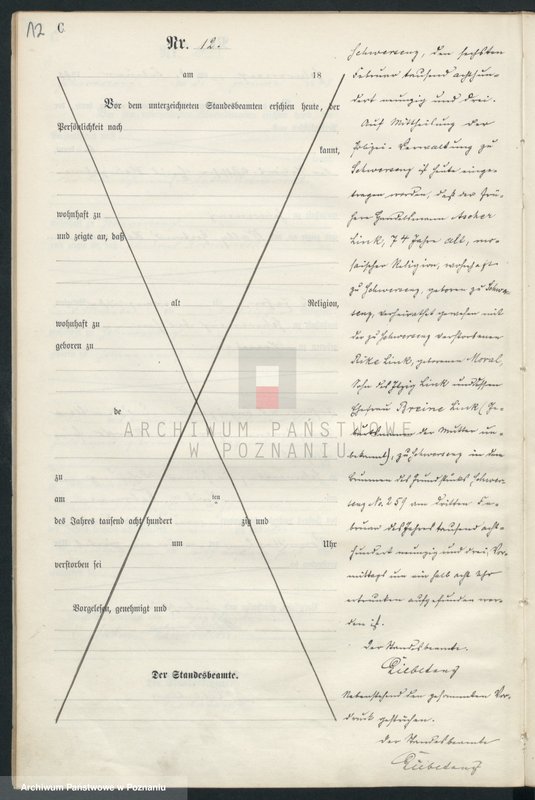 12 C
Nr. 12.
am 18
Vor dem unterzeichneten Standesbeamten erschien heute, der
Persönlichkeit nach
kannt,
wohnhaft zu
und zeigte an, daß
alt Religion,
wohnhaft zu
geboren zu
de
zu
am ten
des Jahres tausend acht hundert zig und
um Uhr
verstorben sei
Vorgelesen, genehmigt und
Der Standesbeamte.
Schwersenz, den sechsten
Februar tausend achthun-
dert neunzig und drei.
Auf Mittheilung der
Polizei-Verwaltung zu
Schwersenz ist heute einge-
tragen worden, daß der frü-
here Handelsmann Ascher
Link, 74 Jahre alt, mo-
saischer Religion, wohnhaft
zu Schwersenz, geboren zu Schwer-
senz, verheirathet gewesen mit
der zu Schwersenz verstorbenen
Rike Link, geborenen Moral,
Sohn des Itzig Link und dessen
Ehefrau Breine Link (Ge-
burtsnamen der Mutter un-
bekannt), zu Schwersenz in dem
Brunnen des Grundstücks Schwer-
senz No. 259 am dritten Fe-
bruar des Jahres tausend acht-
hundert neunzig und drei, Vor-
mittags um ein halb acht Uhr
ertrunken aufgefunden wor-
den ist.
Der Standesbeamte.
Nebenstehend den gesammten Vor-
druck gestrichen.
Der Standesbeamte
ARCHIWUM PAŃSTWOWE
W POZNANIU
Archiwum Państwowe w Poznaniu